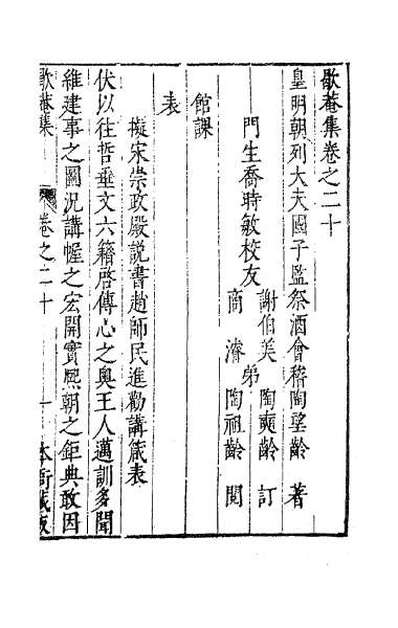 歇菴集卷之二十
皇明朝列大夫國子監祭酒會稽陶望齡著
門生喬時敏校友
謝伯美
商濬
弟
陶奭齡訂
陶祖齡閱
館課
表
擬宋崇政殿説書趙師民進勸講箴表
伏以往哲垂文六籍啓傳心之奥王人邁訓多聞
維建事之圖況講幄之宏開實熙朝之鉅典敢因
歇菴集
卷之二十
一
本衙藏板